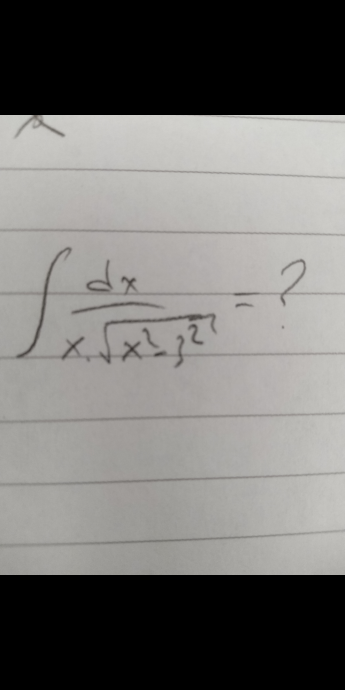 ∫ dx / x.√x²-3² = ?